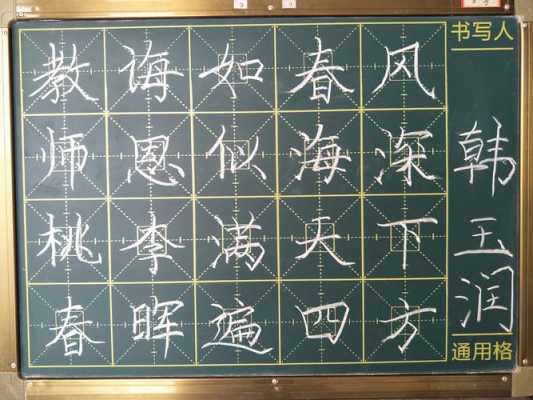 教诲如春风
师恩似海深
桃李满天下
春晖遍四方
书写人
韩玉润
通用格